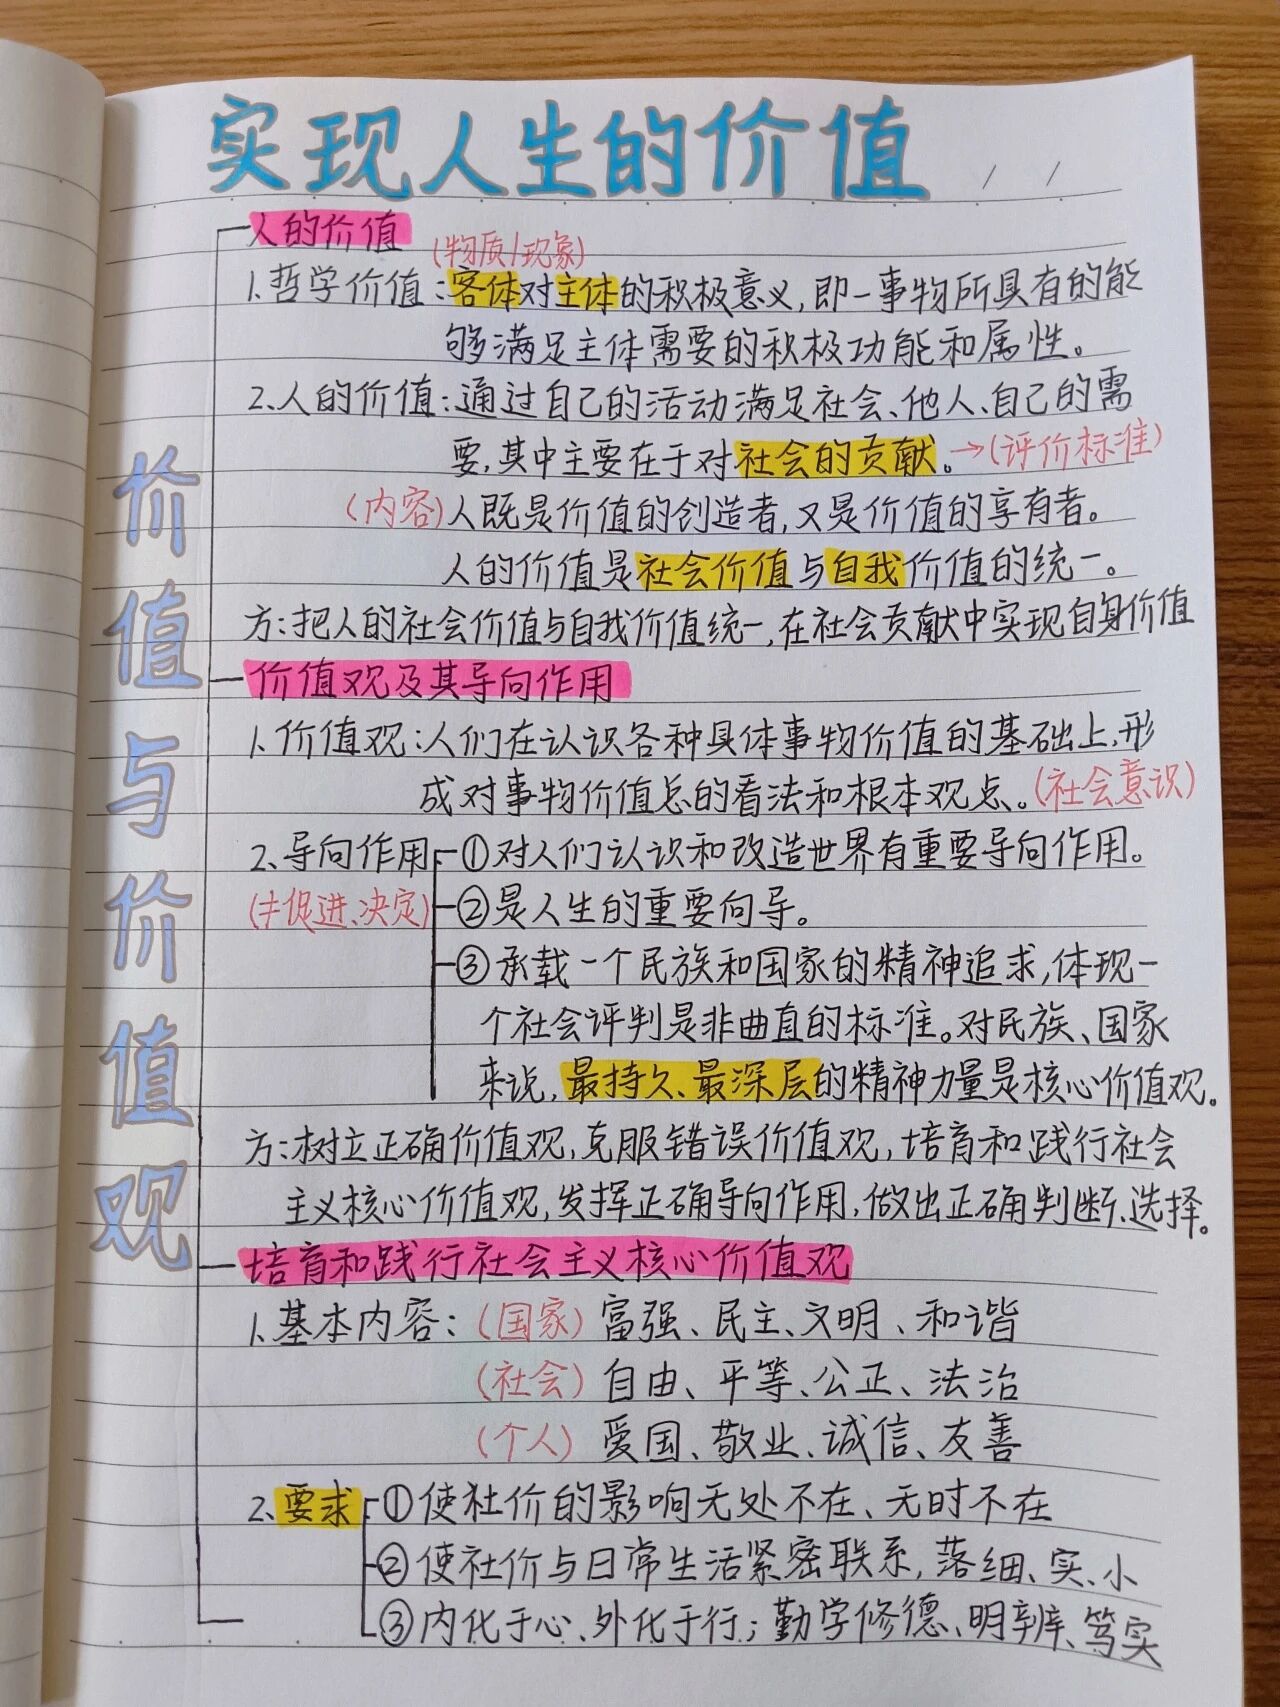 实现人生的价值
/ /
价值与价值观
人的价值
(物质/现象)
1.哲学价值:客体对主体的积极意义,即一事物所具有的能
够满足主体需要的积极功能和属性。
2.人的价值:通过自己的活动满足社会、他人、自己的需
要,其中主要在于对社会的贡献。→(评价标准)
(内容)人既是价值的创造者,又是价值的享有者。
人的价值是社会价值与自我价值的统一。
方:把人的社会价值与自我价值统一,在社会贡献中实现自身价值
价值观及其导向作用
1.价值观:人们在认识各种具体事物价值的基础上,形
成对事物价值总的看法和根本观点。(社会意识)
2.导向作用 ①对人们认识和改造世界有重要导向作用。
(≠促进、决定) ②是人生的重要向导。
③承载一个民族和国家的精神追求,体现一
个社会评判是非曲直的标准。对民族、国家
来说,最持久、最深层的精神力量是核心价值观。
方:树立正确价值观,克服错误价值观,培育和践行社会
主义核心价值观,发挥正确导向作用,做出正确判断、选择。
培育和践行社会主义核心价值观
1.基本内容:(国家)富强、民主、文明、和谐
(社会)自由、平等、公正、法治
(个人)爱国、敬业、诚信、友善
2.要求 ①使社价的影响无处不在、无时不在
②使社价与日常生活紧密联系,落细、实、小
③内化于心、外化于行;勤学修德、明辨、笃实